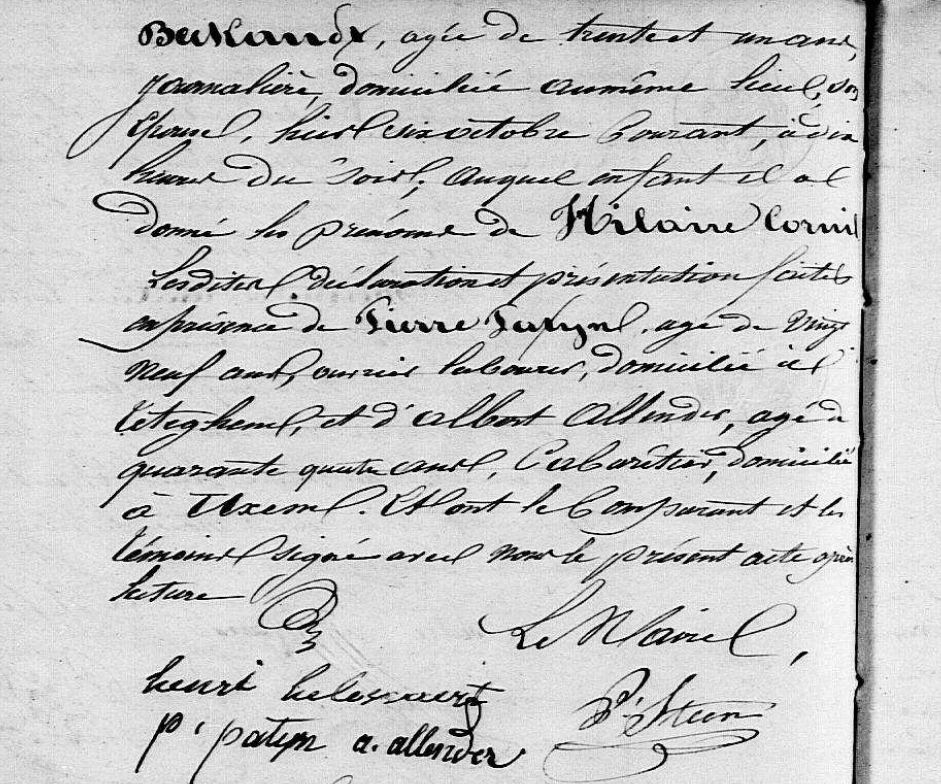 Bekandt, agée de trente et un ans,
journalière, domiciliée au même lieu, son
épouse, hier six octobre courant, à dix
heures du soir, auquel enfant il a
donné les prénoms de Hilaire Cornil
Lesdites déclaration et présentation faites
en présence de Pierre Patyn, agé de vingt
neuf ans, ouvrier laboureur, domicilié à
Téteghem, et d'Albert Allender, agé de
quarante quatre ans, Cabaretier, domicilié
à Uxem. Et ont le Comparant et les
témoins signé avec nous le présent acte après
lecture
Le Maire,
henri
p. patyn a. allender
P. Steen